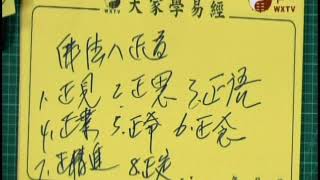 大家學易經
WXTV
WXTV
佛法八正道
1.正見 2.正思 3.正語
4.正業 5.正命 6.正念
7.正精進 8.正定